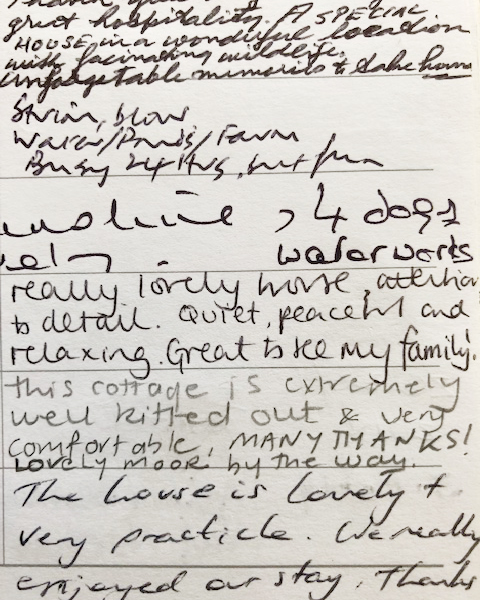 great hospitality. A SPECIAL
HOUSE in a wonderful location
with facinating wildlife.
Unforgetable memories to take home
Swim, blow
Busy 24 Hrs, but fun
4 dogs
waterworks
really lovely house, attention
to detail. Quiet, peaceful and
relaxing. Great to see my family.
this cottage is extremely
well kitted out & very
comfortable, MANY THANKS!
Lovely moor by the way.
The house is lovely +
very practicle. We really
enjoyed our stay. Thanks